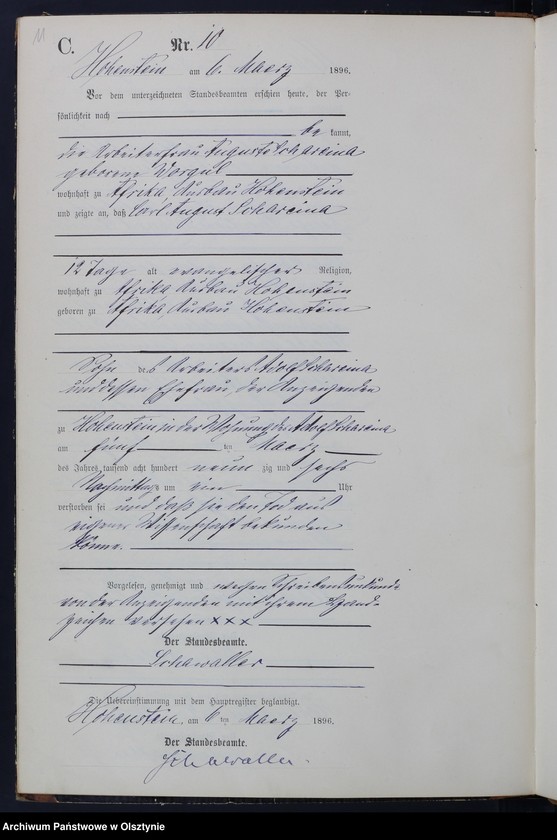 11
C.
Nr. 10
Hohenstein am 6. Maerz 1896.
Vor dem unterzeichneten Standesbeamten erschien heute, der Per-
sönlichkeit nach
be kannt,
die Arbeiterfrau Auguste Schareina
geborene Worgul
wohnhaft zu Afrika, Ausbau Hohenstein
und zeigte an, daß Carl August Schareina
12 Tage alt evangelischer Religion,
wohnhaft zu Afrika Ausbau Hohenstein
geboren zu Afrika, Ausbau Hohenstein
Sohn des Arbeiters Adolf Schareina
und dessen Ehefrau, der Anzeigenden
zu Hohenstein in der Wohnung des Adolf Schareina
am fünf ten Maerz
des Jahres tausend acht hundert neun zig und sechs
Nachmittags um ein Uhr
verstorben sei und daß sie den Tod aus
eigener Wissenschaft bekunden
könne.
Vorgelesen, genehmigt und wegen Schreibensunkunde
von der Anzeigenden mit ihrem Hand-
zeichen versehen XXX
Der Standesbeamte.
Schawaller
Die Uebereinstimmung mit dem Hauptregister beglaubigt.
Hohenstein, am 6 ten Maerz 1896.
Der Standesbeamte.
Schawaller.
Archiwum Państwowe w Olsztynie